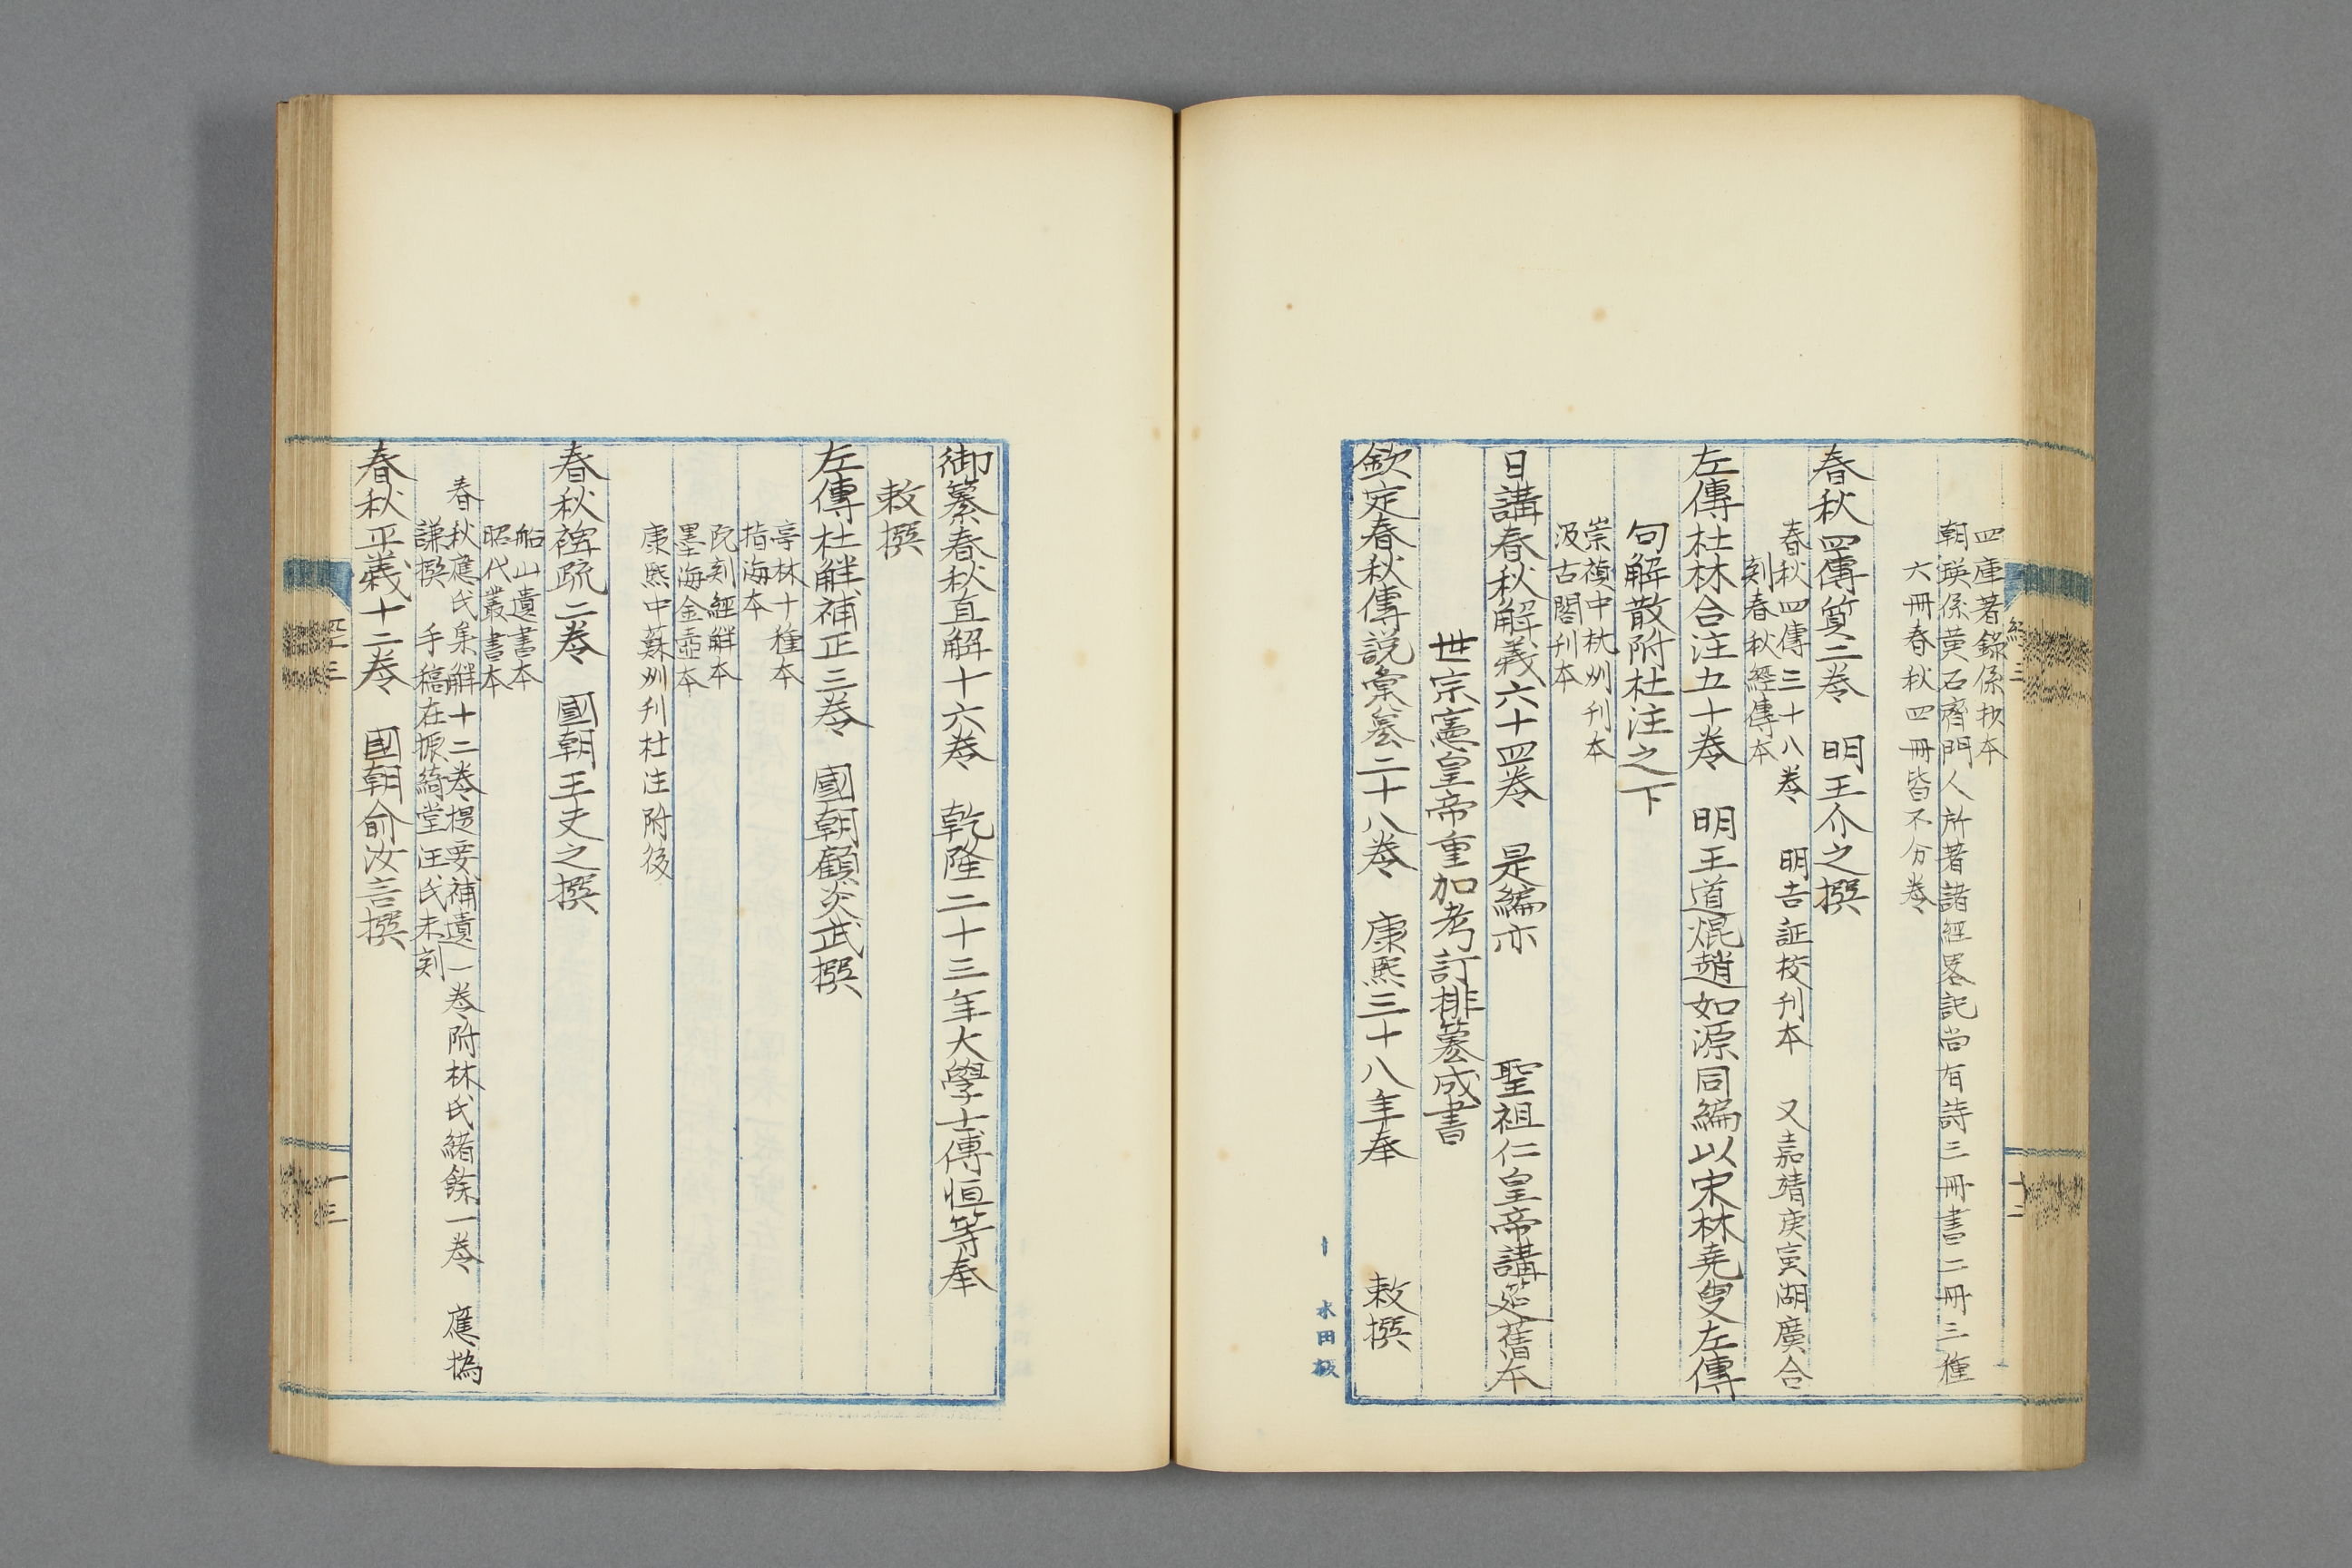 四庫著錄係抄本
朝瑛係黃石齋門人所著諸經畧記尚有詩三冊書二冊三種
六冊春秋四冊皆不分卷
春秋四傳質二卷　明王介之撰
春秋四傳三十八卷　明吉証校刊本　又嘉靖庚寅湖廣合
刻春秋經傳本
左傳杜林合注五十卷　明王道焜趙如源同編以宋林堯叟左傳
句解散附杜注之下
崇禎中杭州刊本
汲古閣刊本
日講春秋解義六十四卷　是編亦　聖祖仁皇帝講筵舊本
世宗憲皇帝重加考訂排纂成書
欽定春秋傳説彙纂三十八卷　康熙三十八年奉　敕撰
經三
十二
水田板
御纂春秋直解十六卷　乾隆二十三年大學士傅恒等奉
敕撰
左傳杜解補正三卷　國朝顧炎武撰
亭林十種本
指海本
阮刻經解本
墨海金壺本
康熙中蘇州刊杜注附後
春秋稗疏二卷　國朝王夫之撰
船山遺書本
昭代叢書本
春秋應氏集解十二卷提要補遺一卷附林氏緒餘一卷　應撝
謙撰　手稿在振綺堂汪氏未刻
春秋平義十二卷　國朝俞汝言撰